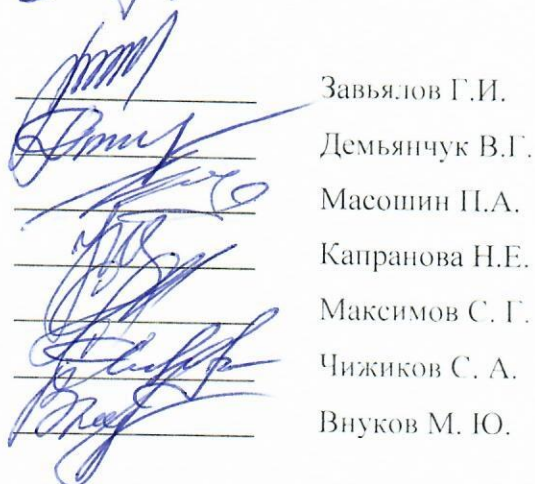 Завьялов Г.И.
Демьянчук В.Г.
Масошин П.А.
Капранова Н.Е.
Максимов С. Г.
Чижиков С. А.
Внуков М. Ю.